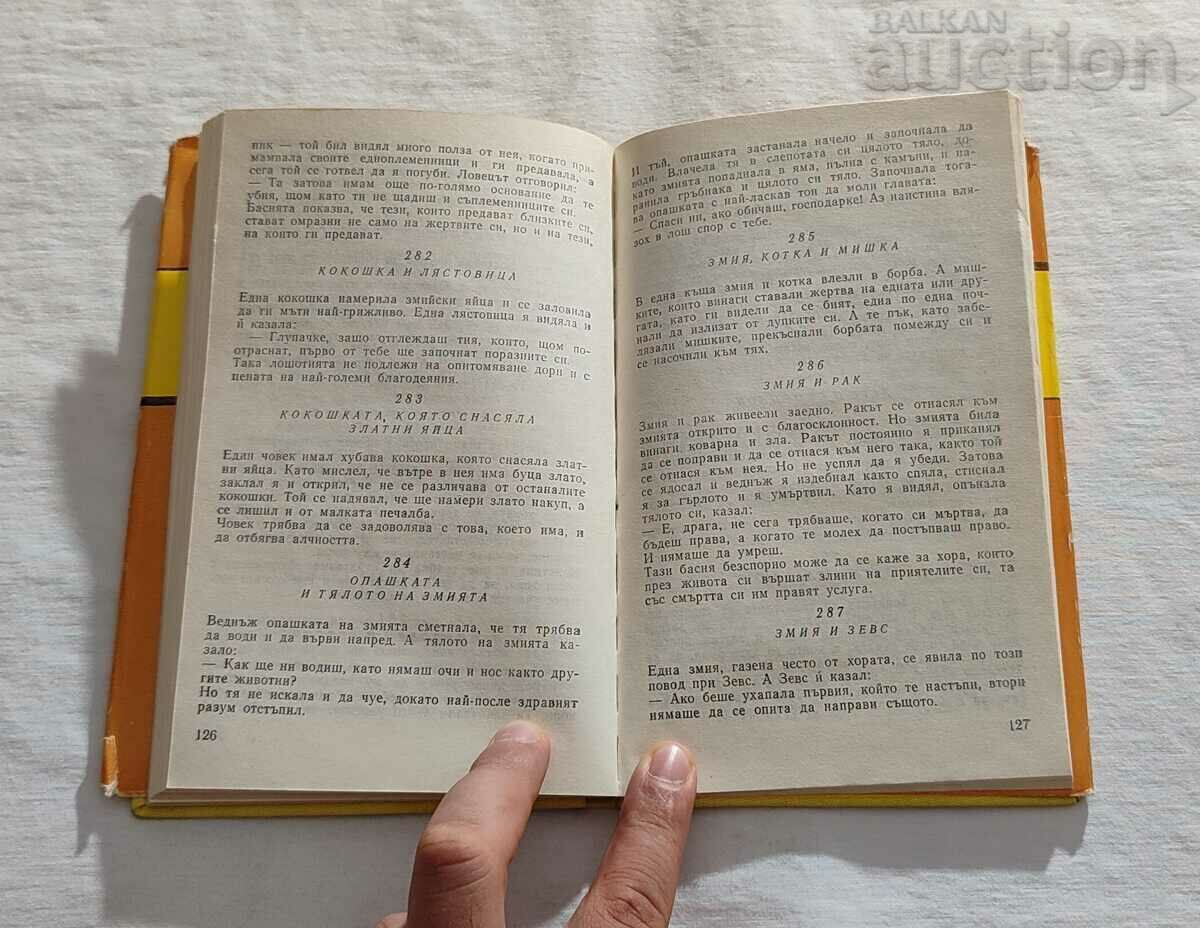 BALKAN
auction
ник — той бил видял много полза от нея, когато при-
мамвала своите едноплеменници и ги предавала, а
сега той се готвел да я погуби. Ловецът отговорил:
— Та затова имам още по-голямо основание да те
убия, щом като ти не щадиш и съплеменниците си.
Баснята показва, че тези, които предават близките си,
стават омразни не само на жертвите си, но и на тези,
на които ги предават.
282
КОКОШКА И ЛЯСТОВИЦА
Една кокошка намерила змийски яйца и се заловила
да ги мъти най-грижливо. Една лястовица я видяла и
ѝ казала:
— Глупачке, защо отглеждаш тия, които, щом по-
отраснат, първо от тебе ще започнат поразните си.
Така лошотията не подлежи на опитомяване дори и с
цената на най-големи благодеяния.
283
КОКОШКАТА, КОЯТО СНАСЯЛА
ЗЛАТНИ ЯЙЦА
Един човек имал хубава кокошка, която снасяла злат-
ни яйца. Като мислел, че вътре в нея има буца злато,
заклал я и открил, че не се различава от останалите
кокошки. Той се надявал, че ще намери злато накуп, а
се лишил и от малката печалба.
Човек трябва да се задоволява с това, което има, и
да отбягва алчността.
284
ОПАШКАТА
И ТЯЛОТО НА ЗМИЯТА
Веднъж опашката на змията сметнала, че тя трябва
да води и да върви напред. А тялото на змията ка-
зало:
— Как ще ни водиш, като нямаш очи и нос както дру-
гите животни?
Но тя не искала и да чуе, докато най-после здравият
разум отстъпил.
126
И тъй, опашката застанала начело и започнала да
води. Влачела тя в слепотата си цялото тяло, до-
като змията попаднала в яма, пълна с камъни, и на-
ранила гръбнака и цялото си тяло. Започнала тога-
ва опашката с най-ласкав тон да моли главата:
— Спаси ни, ако обичаш, господарке! Аз наистина вля-
зох в лош спор с тебе.
285
ЗМИЯ, КОТКА И МИШКА
В една къща змия и котка влезли в борба. А миш-
ките, които винаги ставали жертва на едната или дру-
гата, като ги видели да се бият, една по една поч-
нали да излизат от дупките си. А те пък, като забе-
лязали мишките, прекъснали борбата помежду си и
се насочили към тях.
286
ЗМИЯ И РАК
Змия и рак живеели заедно. Ракът се отнасял към
змията открито и с благосклонност. Но змията била
винаги коварна и зла. Ракът постоянно я приканял
да се поправи и да се отнася към него така, както той
се отнася към нея. Но не успял да я убеди. Затова
се ядосал и веднъж я издебнал както спяла, стиснал
я за гърлото и я умъртвил. Като я видял, опънала
тялото си, казал:
— Е, драга, не сега трябваше, когато си мъртва, да
бъдеш права, а когато те молех да постъпваш право.
И нямаше да умреш.
Тази басня безспорно може да се каже за хора, които
през живота си вършат злини на приятелите си, та
със смъртта си им правят услуга.
287
ЗМИЯ И ЗЕВС
Една змия, газена често от хората, се явила по този
повод при Зевс. А Зевс ѝ казал:
— Ако беше ухапала първия, който те настъпи, втори
нямаше да се опита да направи същото.
127